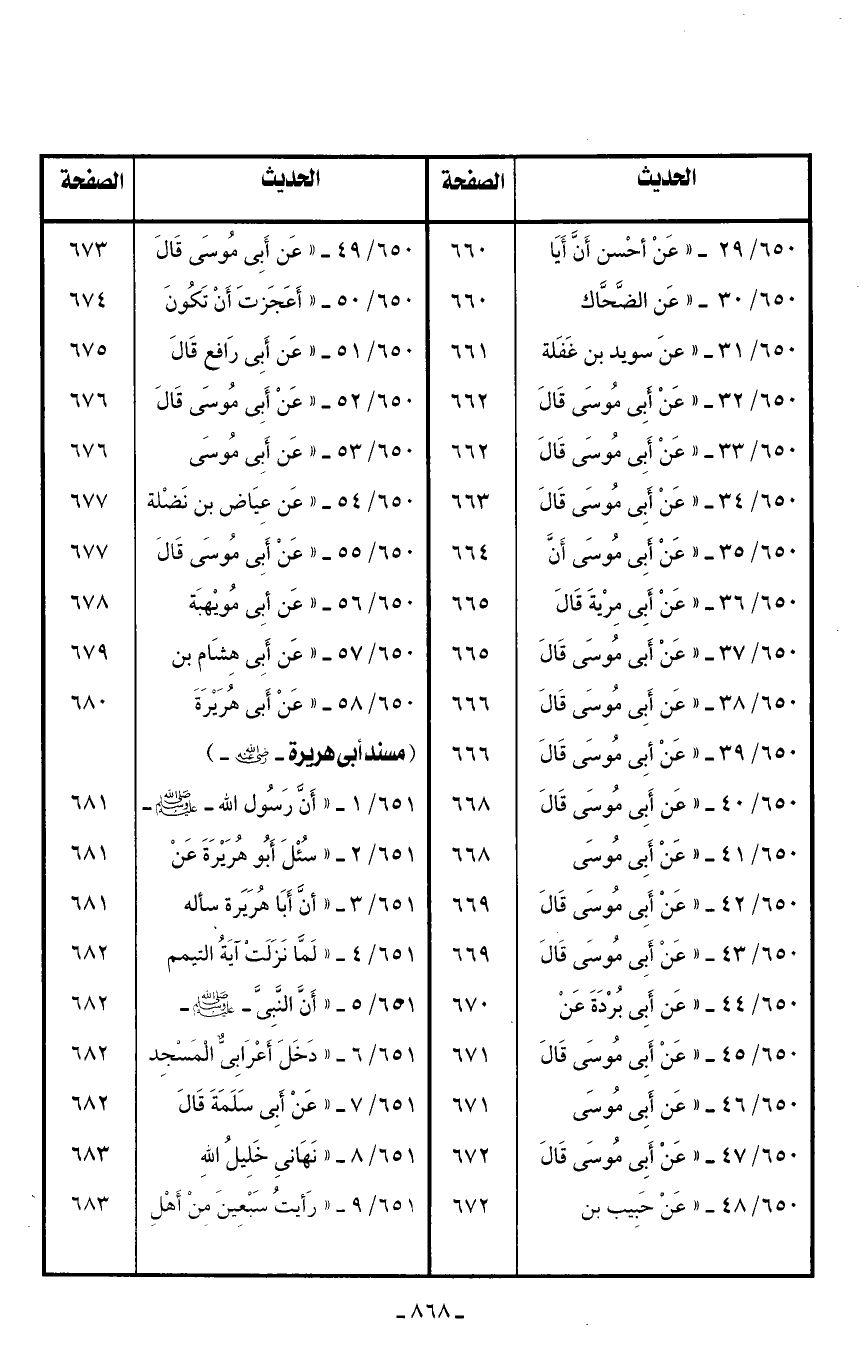 الحديث الصفحة الحديث الصفحة
٦٥٠/ ٢٩ ـ « عَنْ أحْسن أنَّ أَبَا ٦٦٠
٦٥٠/ ٣٠ ـ « عَن الضَّحَّاك ٦٦٠
٦٥٠/ ٣١ ـ « عنَ سويد بن غَفَلة ٦٦١
٦٥٠/ ٣٢ ـ « عَنْ أَبِى مُوسَى قَالَ ٦٦٢
٦٥٠/ ٣٣ ـ « عَنْ أَبِى مُوسَى قَالَ ٦٦٢
٦٥٠/ ٣٤ ـ « عَنْ أَبِى مُوسَى قَالَ ٦٦٣
٦٥٠/ ٣٥ ـ « عَنْ أَبِى مُوسَى أَنَّ ٦٦٤
٦٥٠/ ٣٦ ـ « عَنْ أَبِى مِرْيةَ قَالَ ٦٦٥
٦٥٠/ ٣٧ ـ « عَنْ أَبِى مُوسَى قَالَ ٦٦٥
٦٥٠/ ٣٨ ـ « عَن أَبِى مُوسَى قَالَ ٦٦٦
٦٥٠/ ٣٩ ـ « عَنْ أَبِى مُوسَى قَالَ ٦٦٦
٦٥٠/ ٤٠ ـ « عَن أَبِى مُوسَى قَالَ ٦٦٨
٦٥٠/ ٤١ ـ « عَنْ أَبِى مُوسَى ٦٦٨
٦٥٠/ ٤٢ ـ « عَنْ أَبِى مُوسَى قَالَ ٦٦٩
٦٥٠/ ٤٣ ـ « عَنْ أَبِى مُوسَى قَالَ ٦٦٩
٦٥٠/ ٤٤ ـ « عَن أَبِى بُرْدَةَ عَنْ ٦٧٠
٦٥٠/ ٤٥ ـ « عَنْ أَبِى مُوسَى قَالَ ٦٧١
٦٥٠/ ٤٦ ـ « عَن أَبِى مُوسَى ٦٧١
٦٥٠/ ٤٧ ـ « عَنْ أَبِى مُوسَى قَالَ ٦٧٢
٦٥٠/ ٤٨ ـ « عَنْ حَبِيب بن ٦٧٢
٦٥٠/ ٤٩ ـ « عَن أَبِى مُوسَى قَالَ ٦٧٣
٦٥٠/ ٥٠ ـ « أَعَجَزتَ أَنْ تَكُونَ ٦٧٤
٦٥٠/ ٥١ ـ « عَن أَبِى رَافِع قَالَ ٦٧٥
٦٥٠/ ٥٢ ـ « عَنْ أَبِى مُوسَى قَالَ ٦٧٦
٦٥٠/ ٥٣ ـ « عَن أَبِى مُوسَى ٦٧٦
٦٥٠/ ٥٤ ـ « عَن عِيَاض بن نَضْلة ٦٧٧
٦٥٠/ ٥٥ ـ « عَنْ أَبِى مُوسَى قَالَ ٦٧٧
٦٥٠/ ٥٦ ـ « عَن أبى مُويْهِبَة ٦٧٨
٦٥٠/ ٥٧ ـ « عَن أَبِى هِشَام بن ٦٧٩
٦٥٠/ ٥٨ ـ « عَنْ أَبِى هُرَيْرَةَ ٦٨٠
( مسند أبى هريرة ـ رضي الله عنه ـ )
٦٥١/ ١ ـ « أَنَّ رَسُول الله ـ ﷺ ـ ٦٨١
٦٥١/ ٢ ـ « سُئلَ أَبُو هُرَيْرَةَ عَنْ ٦٨١
٦٥١/ ٣ ـ « أنَّ أَبَا هُرَيَرة سأله ٦٨١
٦٥١/ ٤ ـ « لَمَّا نَزَلَتْ آيَةُ التيمم ٦٨٢
٦٥١/ ٥ ـ « أَنَّ النَّبِىَّ ـ ﷺ ـ ٦٨٢
٦٥١/ ٦ ـ « دَخَلَ أَعْرَابِىٌّ الْمَسْجِد ٦٨٢
٦٥١/ ٧ ـ « عَنْ أَبِى سَلَمَةَ قَالَ ٦٨٢
٦٥١/ ٨ ـ « نَهَانِى خَلِيلُ اللهِ ٦٨٣
٦٥١/ ٩ ـ « رَأيتُ سَبْعِينَ مِنْ أَهْلِ ٦٨٣
ـ ٨٦٨ ـ